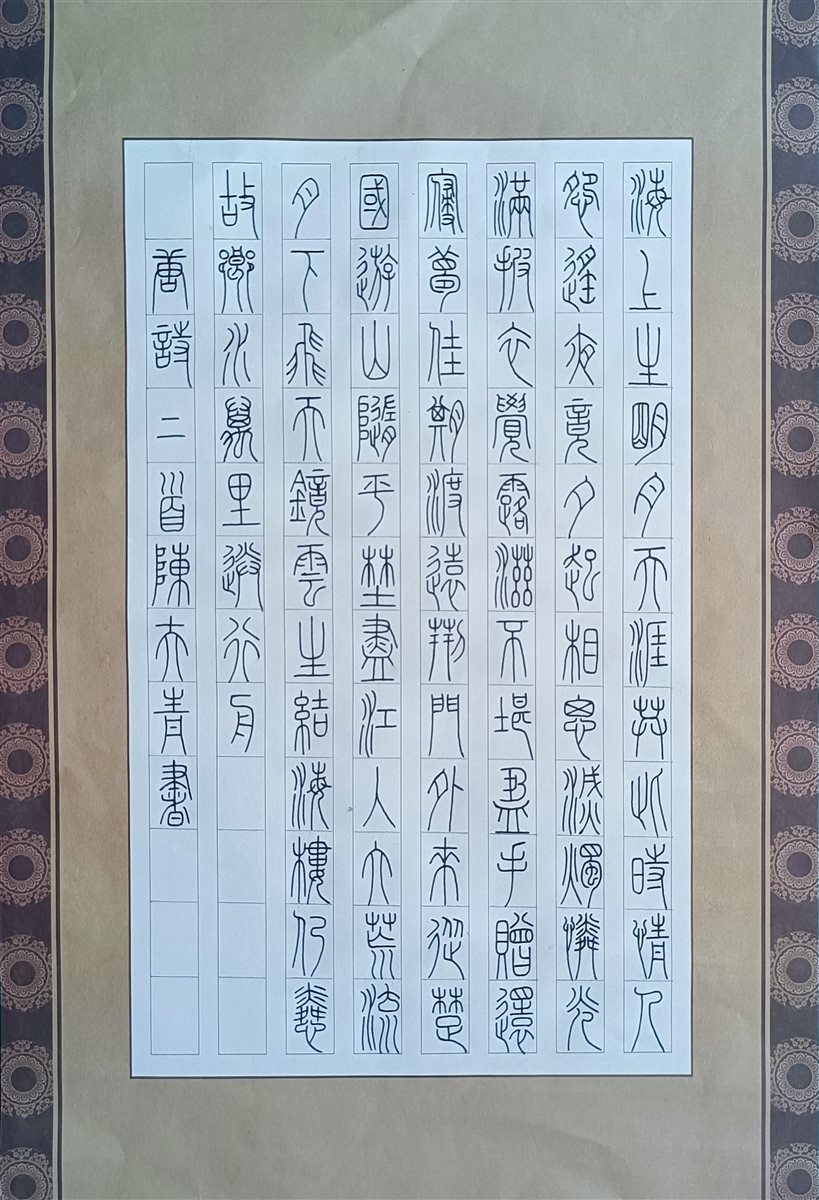 海上生明月天涯共此時情人
怨遙夜竟夕起相思滅燭憐光
滿披衣覺露滋不堪盈手贈還
寢夢佳期渡遠荊門外來從楚
國遊山隨平野盡江入大荒流
月下飛天鏡雲生結海樓仍憐
故鄉水萬里送行舟
唐詩二首陳青書